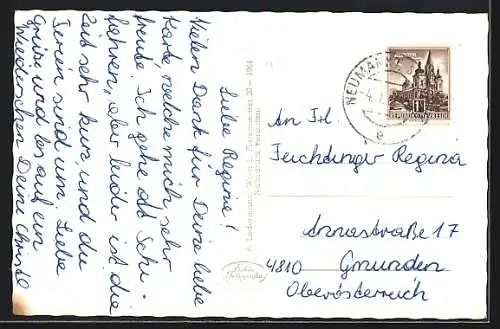 Liebe Regina!
Vielen Dank für Deine liebe
Karte welche mich sehr
freute. Ich gehe oft Schi-
fahren, aber leider ist die
Zeit sehr kurz, und die
Ferien sind um. Liebe
Grüße und bis auf ein
Wiedersehen Deine Christe
An Frl.
Feichtinger Regina
Annastraße 17
4810 Gmunden
Oberösterreich
NEUMARK
REPUBLIK ÖSTERREICH